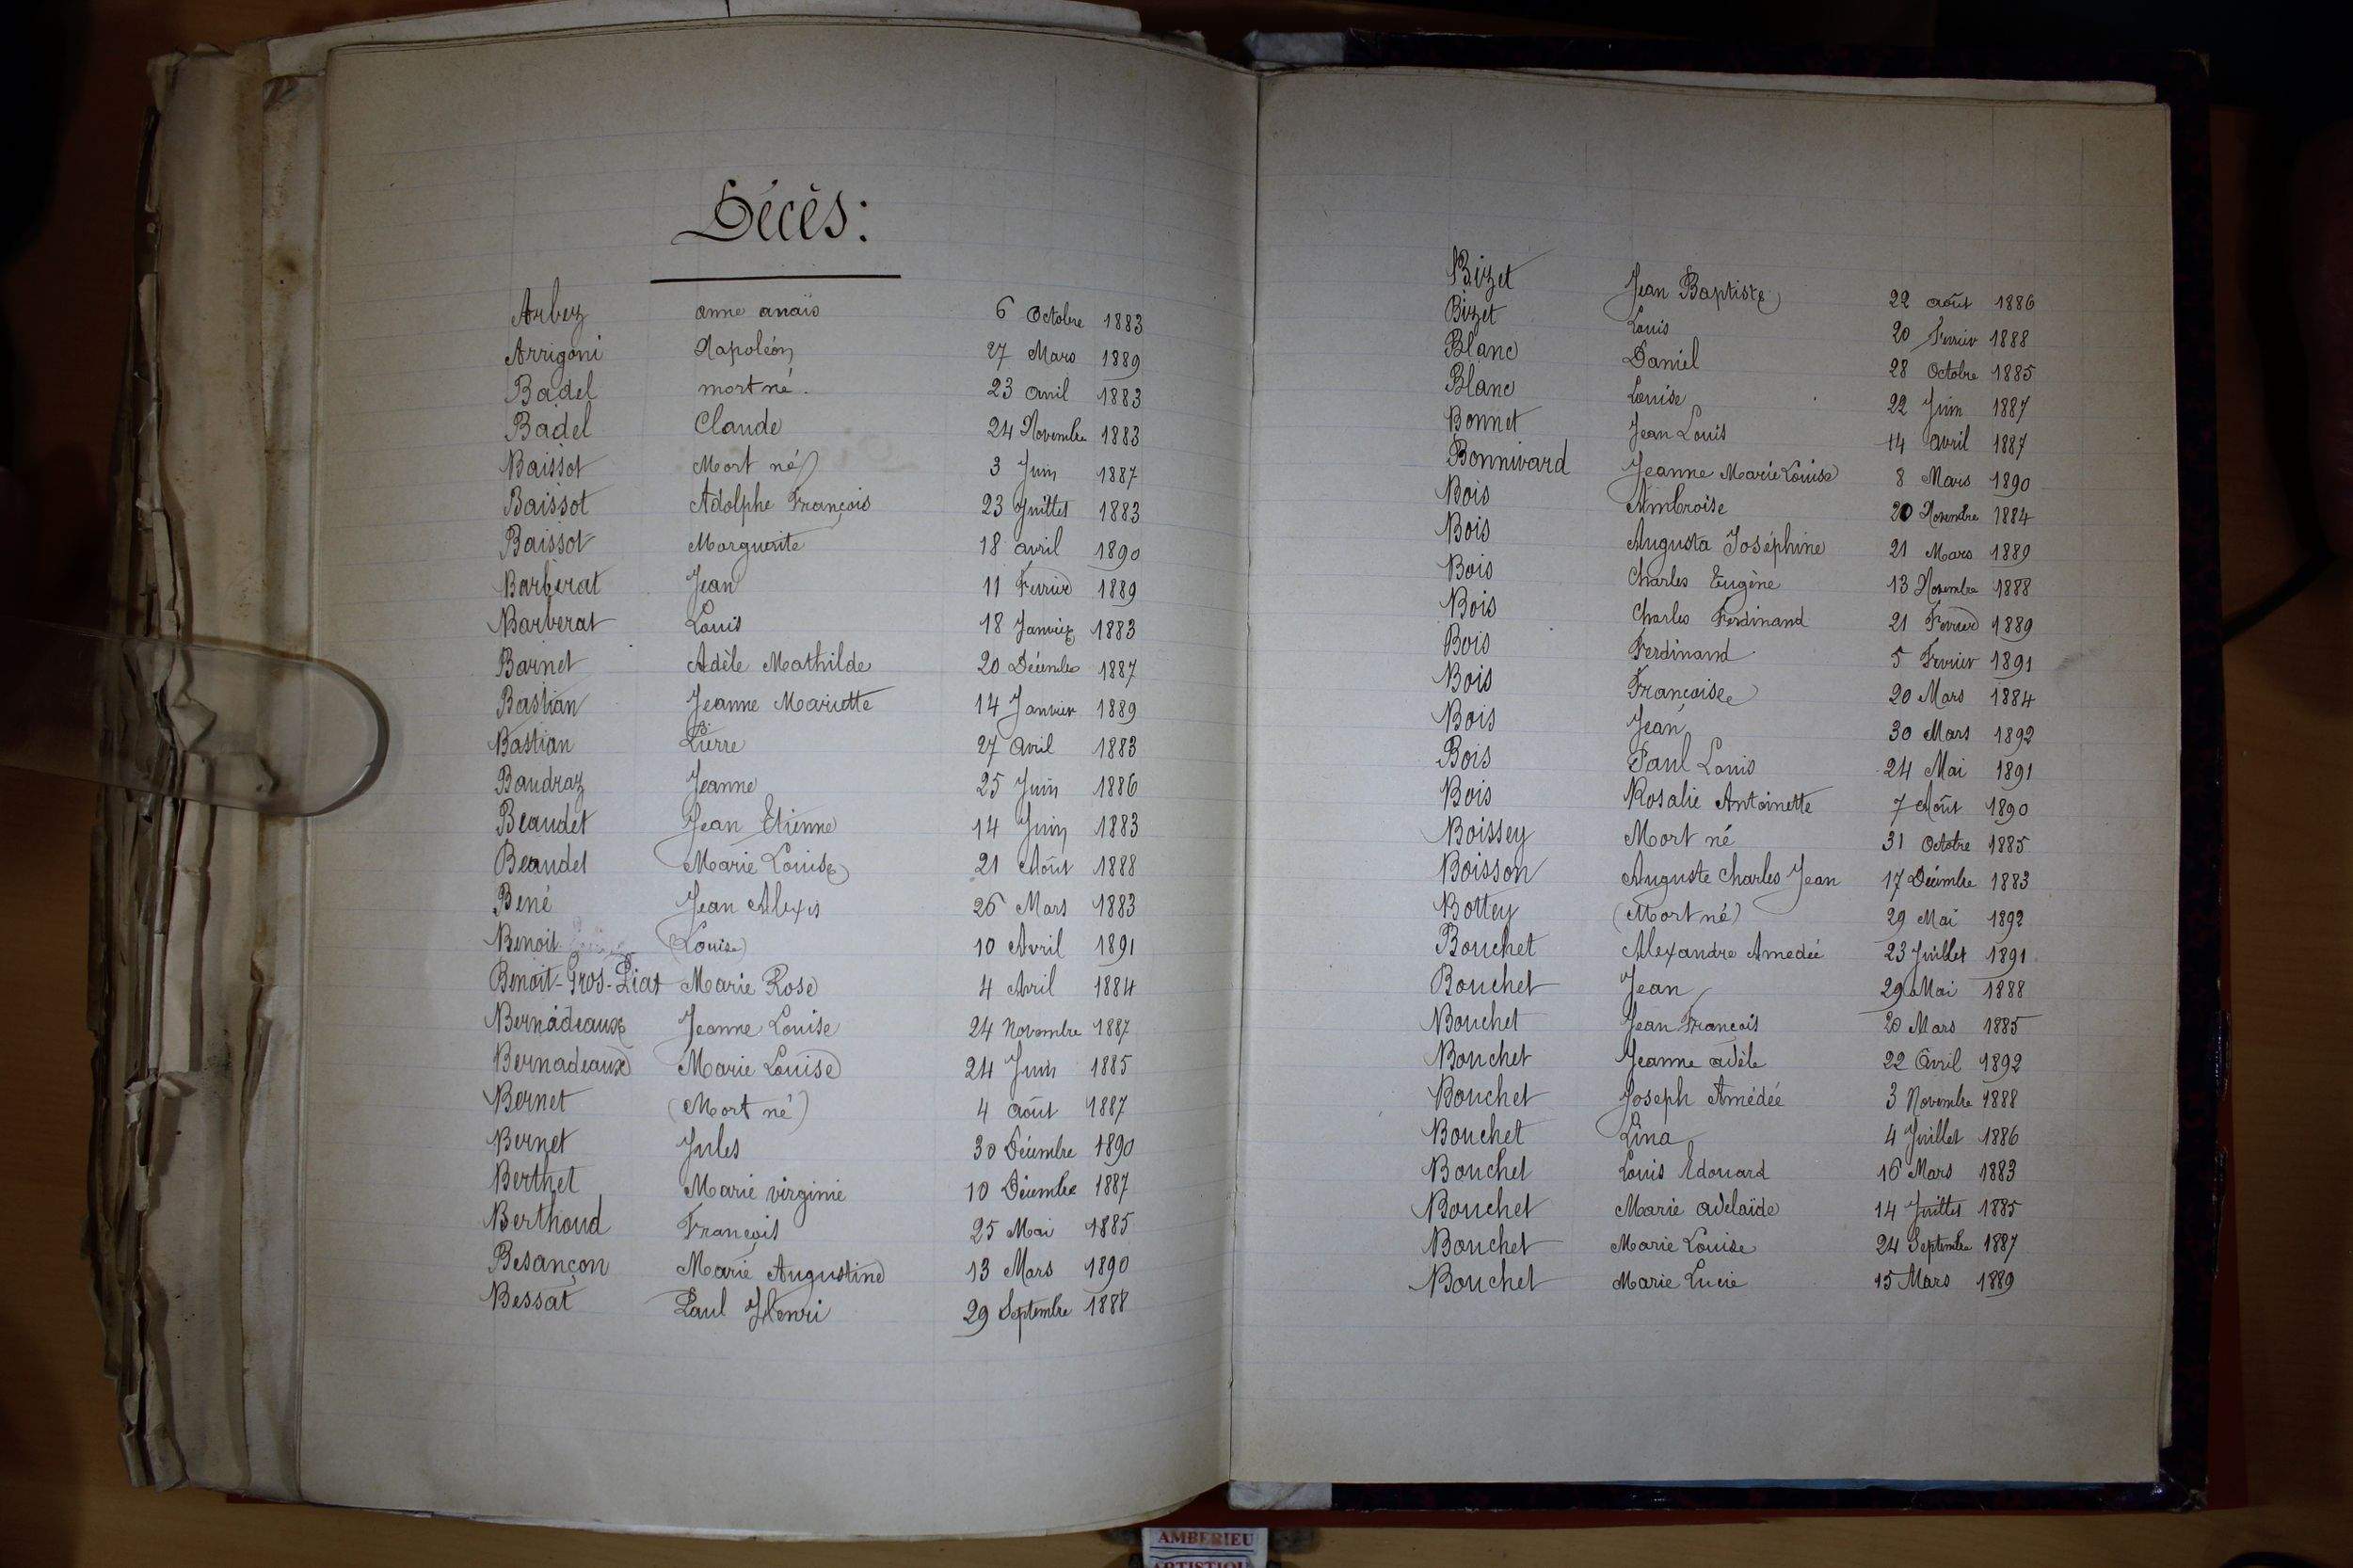 Décès:
Arbez Anne Anaïs 6 Octobre 1883
Arrigoni Napoléon 27 Mars 1889
Badel mort né. 23 avril 1883
Badel Claude 24 Novembre 1883
Baissot Mort né 3 Juin 1887
Baissot Adolphe François 23 Juillet 1883
Baissot Marguerite 18 avril 1890
Barberat Jean 11 Fevrier 1889
Barberat Louis 18 Janvier 1883
Barnet Adèle Mathilde 20 Décembre 1887
Bastian Jeanne Mariette 14 Janvier 1889
Bastian Pierre 27 Avril 1883
Baudraz Jeanne 25 Juin 1886
Beaudet Jean Etienne 14 Juin 1883
Beaudet Marie Louise 21 Août 1888
Bené Jean Alexis 26 Mars 1883
Benoit (Louise) 10 Avril 1891
Benoit-Gros-Piat Marie Rose 4 Avril 1884
Bernadeaux Jeanne Louise 24 Novembre 1887
Bernadeaux Marie Louise 24 Juin 1885
Bernet (Mort né) 4 Août 1887
Bernet Jules 30 Décembre 1890
Berthet Marie virginie 10 Décembre 1887
Berthoud François 25 Mai 1885
Besançon Marie Augustine 13 Mars 1890
Bessat Paul Henri 29 Septembre 1888
Bizet Jean Baptiste 22 août 1886
Bizet Louis 20 Fevrier 1888
Blanc Daniel 28 Octobre 1885
Blanc Louise 22 Juin 1887
Bonnet Jean Louis 14 avril 1887
Bonnivard Jeanne Marie Louise 8 Mars 1890
Bois Ambroise 20 Novembre 1884
Bois Augusta Joséphine 21 Mars 1889
Bois Charles Eugène 13 Novembre 1888
Bois Charles Ferdinand 21 Fevrier 1889
Bois Ferdinand 5 Fevrier 1891
Bois Françoise 20 Mars 1884
Bois Jean 30 Mars 1892
Bois Paul Louis 24 Mai 1891
Bois Rosalie Antoinette 7 Août 1890
Boissey Mort né 31 Octobre 1885
Boisson Auguste Charles Jean 17 Décembre 1883
Bottey (Mort né) 29 Mai 1892
Bouchet Alexandre Amedée 23 Juillet 1891
Bouchet Jean 29 Mai 1888
Bouchet Jean François 20 Mars 1885
Bouchet Jeanne Adèle 22 Avril 1892
Bouchet Joseph Amédée 3 Novembre 1888
Bouchet Lina 4 Juillet 1886
Bouchet Louis Edouard 16 Mars 1883
Bouchet Marie Adelaïde 14 Juillet 1885
Bouchet Marie Louise 24 Septembre 1887
Bouchet Marie Lucie 15 Mars 1889
AMBERIEU